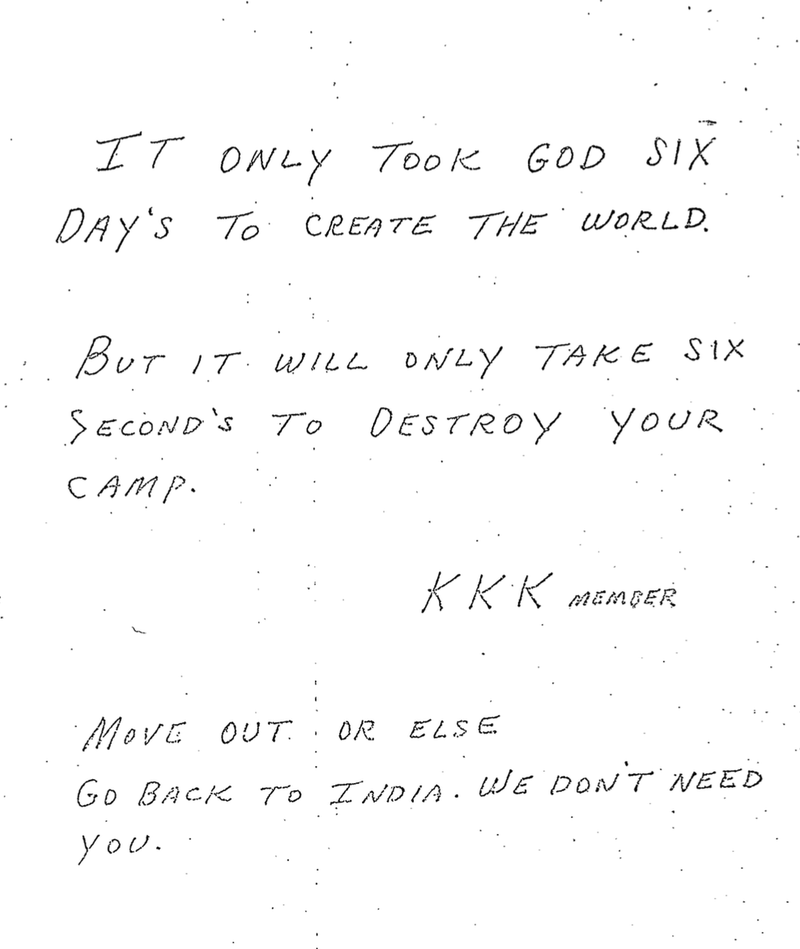 IT ONLY TOOK GOD SIX
DAY'S TO CREATE THE WORLD.
BUT IT WILL ONLY TAKE SIX
SECOND'S TO DESTROY YOUR
CAMP.
KKK MEMBER
MOVE OUT OR ELSE
GO BACK TO INDIA. WE DON'T NEED
YOU.